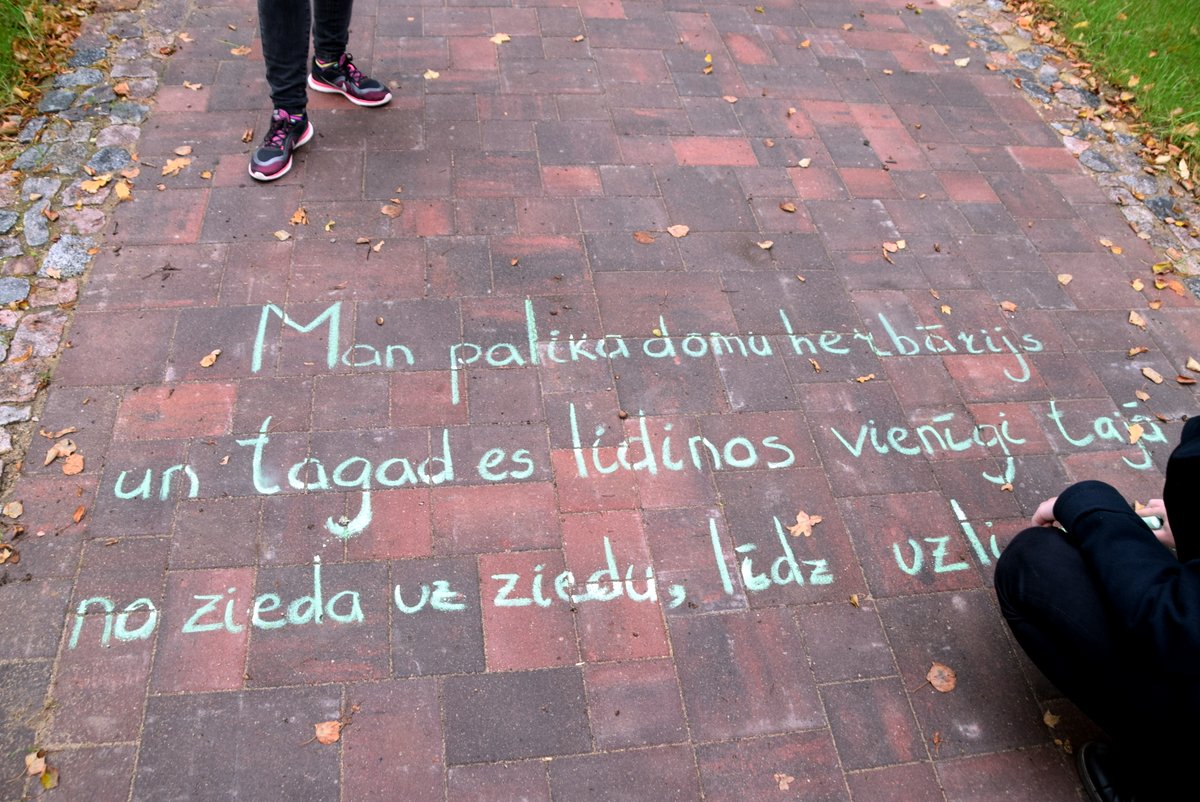 Man palika domu herbārijs
un tagad es lidinos vienīgi tajā
no zieda uz ziedu, līdz uzli